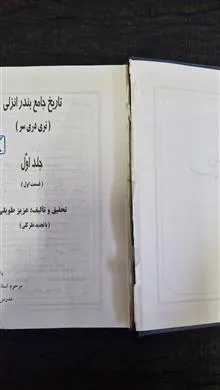 تاریخ جامع بندر انزلی
( نری دری سر )
جلد اوّل
(قسمت اول)
تحقیق و تألیف: عزیز طویلی
(با تجدید نظر کلی)
با
مرحوم استاد
مدرس